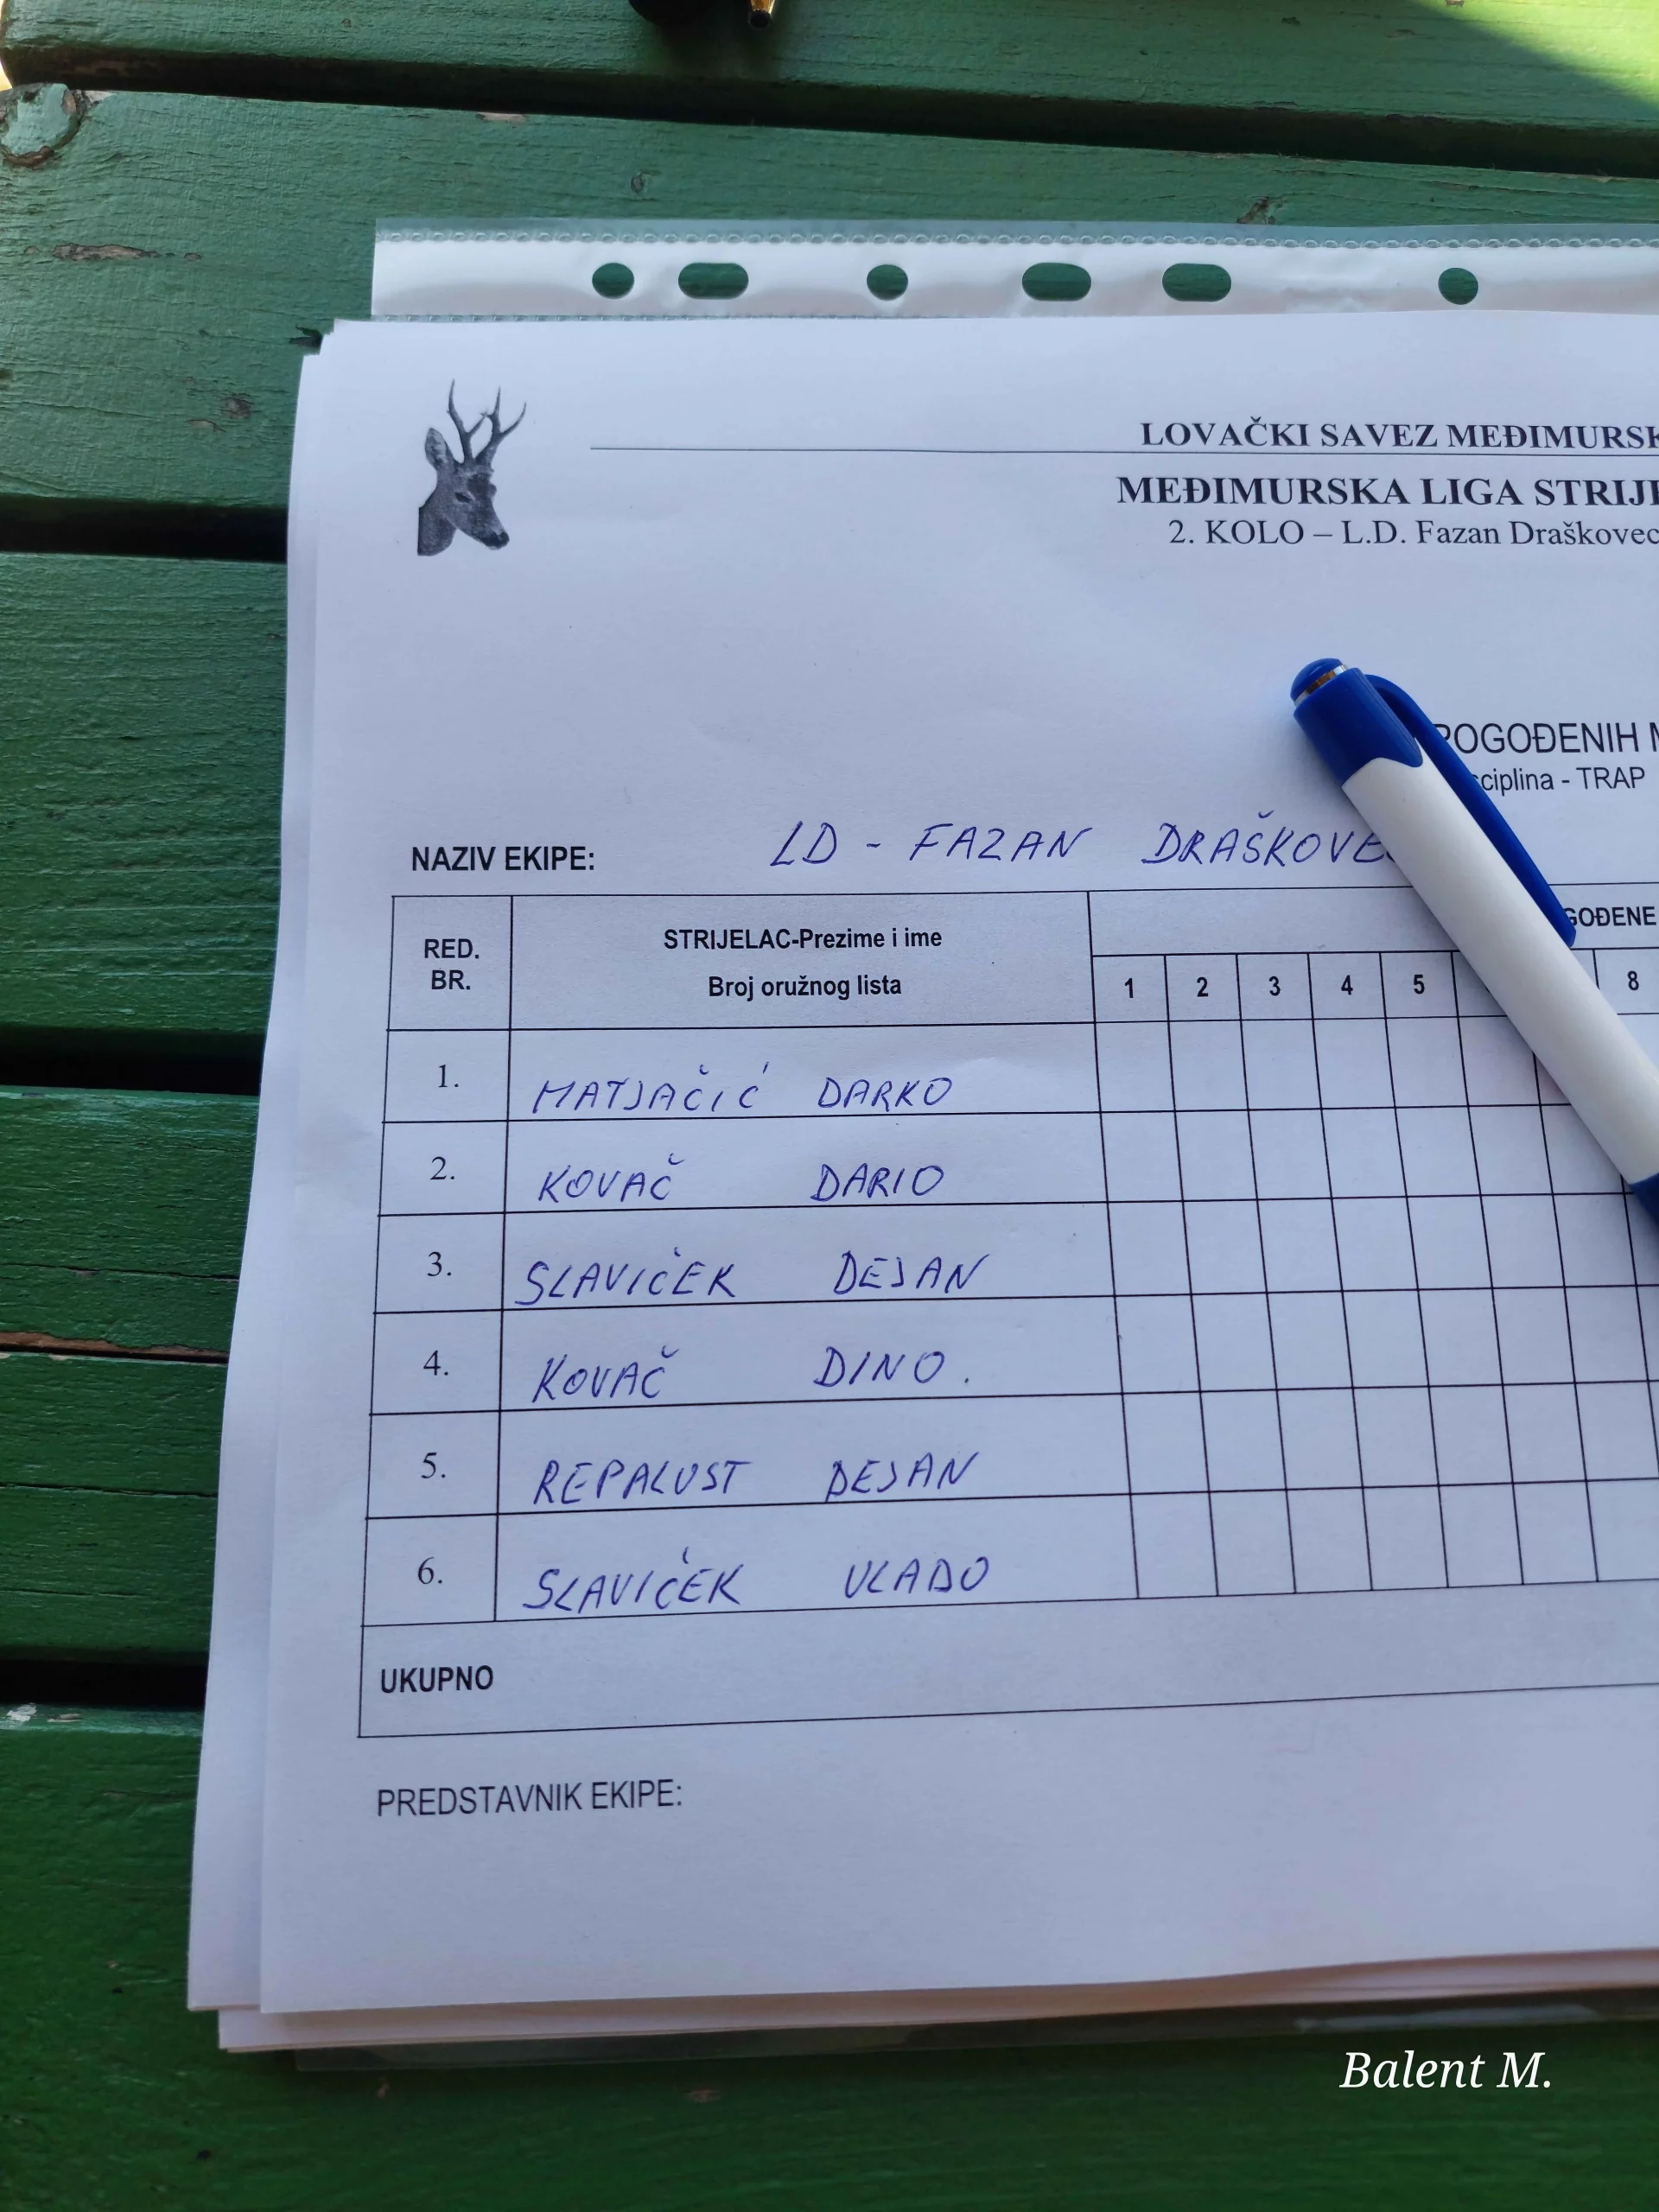 LOVAČKI SAVEZ MEĐIMURSK
MEĐIMURSKA LIGA STRIJE
2. KOLO – L.D. Fazan Draškovec
POGOĐENIH M
sciplina - TRAP
NAZIV EKIPE: LD - FAZAN DRAŠKOVEC
RED. BR. STRIJELAC-Prezime i ime Broj oružnog lista GOĐENE
1 2 3 4 5 8
1. MATJAČIĆ DARKO
2. KOVAČ DARIO
3. SLAVIČEK DEJAN
4. KOVAČ DINO.
5. REPALUST DEJAN
6. SLAVIČEK VLADO
UKUPNO
PREDSTAVNIK EKIPE:
Balent M.